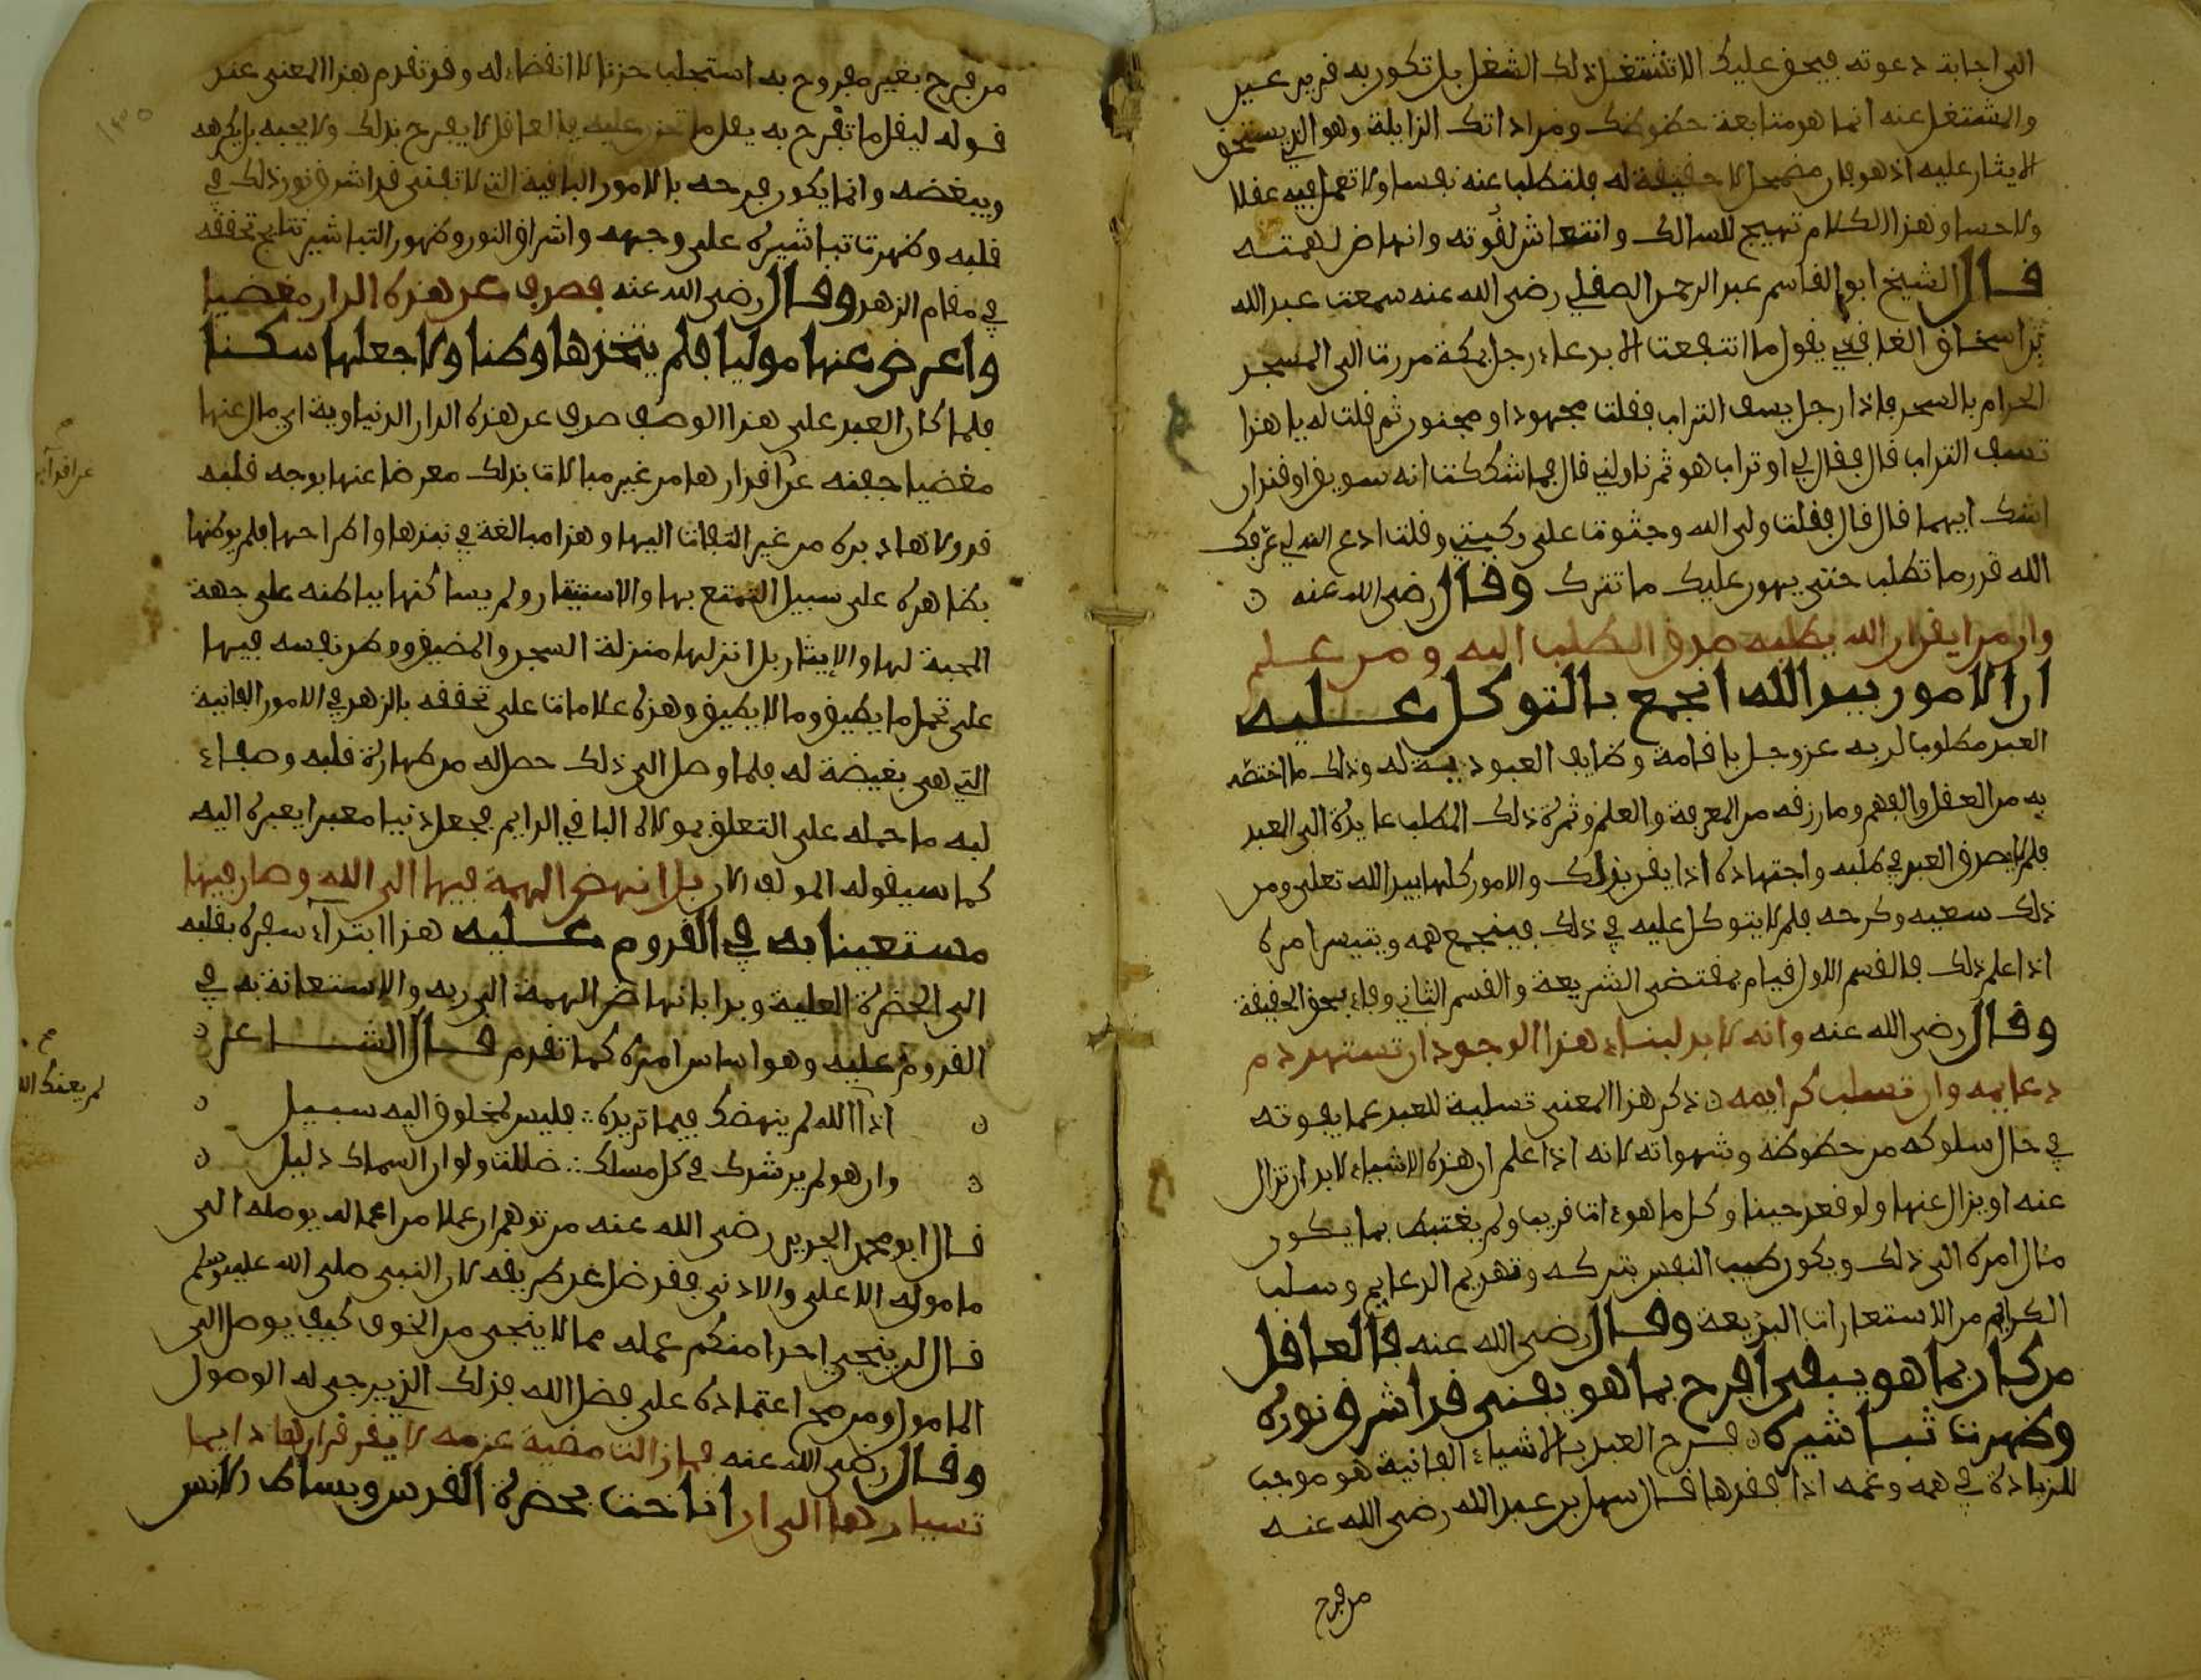 الى اجابة دعوته فيحق عليك الا تشتغل بذلك الشغل بل تكون به قرير عين
والمشتغل عنه انما هو متابعة حظوظك ومراداتك الزايلة وهو الذي يستحق
الايثار عليه اذ هو فان مضمحل لا حقيقة له فلتطلب عنه نفسا ولا تعمل فيه عقلا
ولا حسا وهذا الكلام تهييج للسالك وانتعاش لقوته وانهاض لهمته
قال الشيخ ابو القاسم عبد الرحمن الصقلي رضي الله عنه سمعت عبد الله
بن اسحاق الغافقي يقول ما انتفعت الا بدعاء رجل بمكة مررت الى المسجد
الحرام بالسحر فاذا رجل يسف التراب فقلت مجهود او مجنون ثم قلت له يا هذا
تسف التراب قال فقال لي او تراب هو ثم ناولني قال فما شككت انه سويق او قند ان
اشك ايهما قال قال فقلت ولي الله وجثوت على ركبتي وقلت ادع الله لي عرفك
الله قدر ما تطلب حتى يهون عليك ما تترك وقال رضي الله عنه
وان من ايقن ان الله يطلبه صدق الطلب اليه ومن علم
ان الامور بيد الله انجمع بالتوكل عليه
العبد مطلوب لربه عز وجل باقامة وظايف العبودية له وذلك ما اختصه
به من العقل والفهم وما رزقه من المعرفة والعلم وثمرة ذلك الطلب عايدة الى العبد
فلم لا يصدق العبد في طلبه واجتهاده اذا يقن بذلك والامور كلها بيد الله تعلى ومن
ذلك سعيه وكدحه فلم لا يتوكل عليه في ذلك فينجمع همه ويتيسر امره
اذا علم ذلك فالقسم الاول قيام بمقتضى الشريعة والقسم الثاني وفاء بحق الحقيقة
وقال رضي الله عنه وانه لا بد لبناء هذا الوجود ان تستهدم
دعايمه وان تسلب كرايمه ذكر هذا المعنى تسلية للعبد عما يفوته
في حال سلوكه من حظوظه وشهواته لانه اذا علم ان هذه الاشياء لا بد ان تزال
عنه او يزال عنها ولو قعد حينا وكل ما هو ءات قريب ولم يغتبط بما يكون
مثال امره الى ذلك ويكون طيب النفس بتركه وتهديم الدعايم وسلب
الكرايم من الاستعارات البديعة وقال رضي الله عنه فالعاقل
من كان بما هو يبقى افرح بما هو يفنى قد اشرق نوره
وظهرت تباشيره فرح العبد بالاشياء الفانية هو موجب
للزيادة في همه وغمه اذا فقدها قال سهل بن عبد الله رضي الله عنه
من فرح
من فرح بغير مفروح به استجلب حزنا لا انقضاء له وقد تقدم هذا المعنى عند
قوله ليقل ما تفرح به يقل ما تحزن عليه فالعاقل لا يفرح بذلك ولا يحبه بل يكرهه
ويبغضه وانما يكون فرحه بالامور الباقية التي لا تفنى قد اشرق نور ذلك في
قلبه وظهرت تباشيره على وجهه واشراق النور وظهور التباشير نتايج تحققه
في مقام الزهد وقال رضي الله عنه فصدف عن هذه الدار مغضيا
واعرض عنها موليا فلم يتخذها وطنا ولا جعلها سكنا
فلما كان العبد على هذا الوصف صدف عن هذه الدار الدنياوية اي مال عنها
مغضيا جفنه عن اقذارها من غير مبالات بذلك معرضا عنها بوجه قلبه
قد ولاها دبره من غير التفات اليها وهذا مبالغة في نبذها واطراحها فلم يوطنها
بظاهره على سبيل التمتع بها والاستيثار ولم يساكنها بباطنه على جهة
المحبة لها والايثار بل انزلها منزلة السجن والمضيق ووطن نفسه فيها
على تحمل ما يطيق وما لا يطيق وهذه علامات على تحققه بالزهد في الامور الفانية
التي هي بغيضة له فلما وصل الى ذلك حصل له من طهارة قلبه وصفاء
لبه ما حمله على التعلق بمولاه الباقي الدايم فجعل دنيا معبرا يعبره اليه
كما سيقوله المولف الان بل انهض الهمة فيها الى الله وصار فيها
مستعينا به في القدوم عليه هذا ابتداء سفره بقلبه
الى الحضرة العلية وبدا بانهاض الهمة الى ربه والاستعانة به في
القدوم عليه وهو اساس امره كما تقدم قال الشاعر
اذا الله لم ينهضك فيما تريده ∴ فليس لمخلوق اليه سبيل
وان هو لم يرشدك في كل مسلك ∴ ضللت ولو ان السماك دليل
قال ابو محمد الجريري رضي الله عنه من توهم ان عملا من اعماله يوصله الى
ماموله الاعلى والادنى فقد ضل عن طريقه لان النبي صلى الله عليه وسلم
قال لن ينجي احدا منكم عمله فما لا ينجي من الخوف كيف يوصل الى
المامول ومن صح اعتماده على فضل الله فذلك الذي يرجى له الوصول
وقال رضي الله عنه فما زالت مطية عزمه لا يقر قرارها دايما
تسيارها الى ان اناخت بحضرة القدس وبساط الانس
صح
صح
لم يعنك الله